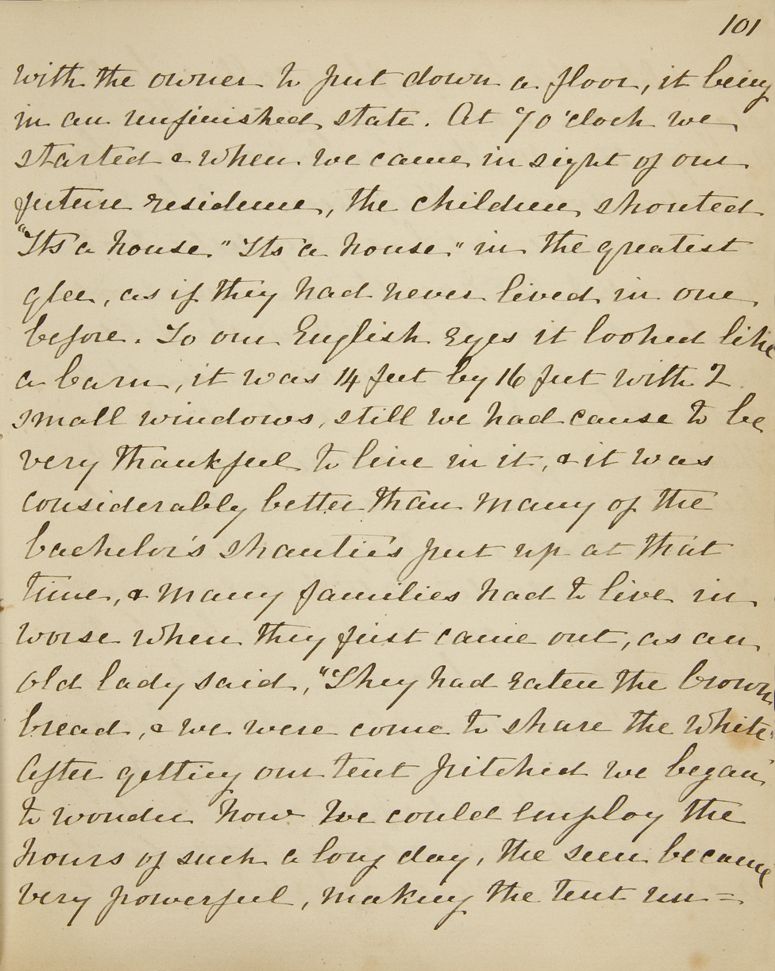 101
with the owner to put down a floor, it being
in an unfinished state. At 7 o'clock we
started & when we came in sight of our
future residence, the children shouted
"Its a house" "Its a house" in the greatest
glee, as if they had never lived in one
before. To our English Eyes it looked like
a barn, it was 14 feet by 16 feet with 2
small windows, still we had cause to be
very thankful to live in it, & it was
considerably better than many of the
bachelor's shantie's put up at that
time, & many families had to live in
worse when they first came out, as an
old lady said, "They had eaten the brown
bread, & we were come to share the white"
After getting our tent pitched we began
to wonder how we could employ the
hours of such a long day, the seen became
very powerful, making the tent un=